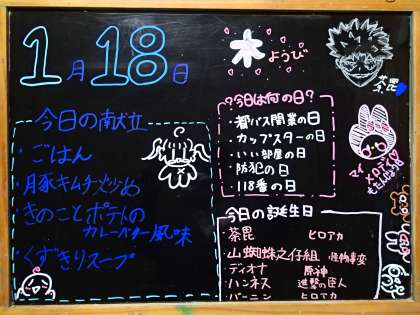 1月18日
木ようび
荼毘
今日の献立
・ごはん
・豚キムチ炒め
・きのことポテトの
カレーバター風味
・くずきりスープ
?今日は何の日?
・都バス開業の日
・カップスターの日
・いい部屋の日
・防犯の日
・118番の日
マイメロディ
今日の誕生日
荼毘 ヒロアカ
山蜘蛛之仔組 怪物事変
ディオナ 原神
ハンネス 進撃の巨人
バーニン ヒロアカ